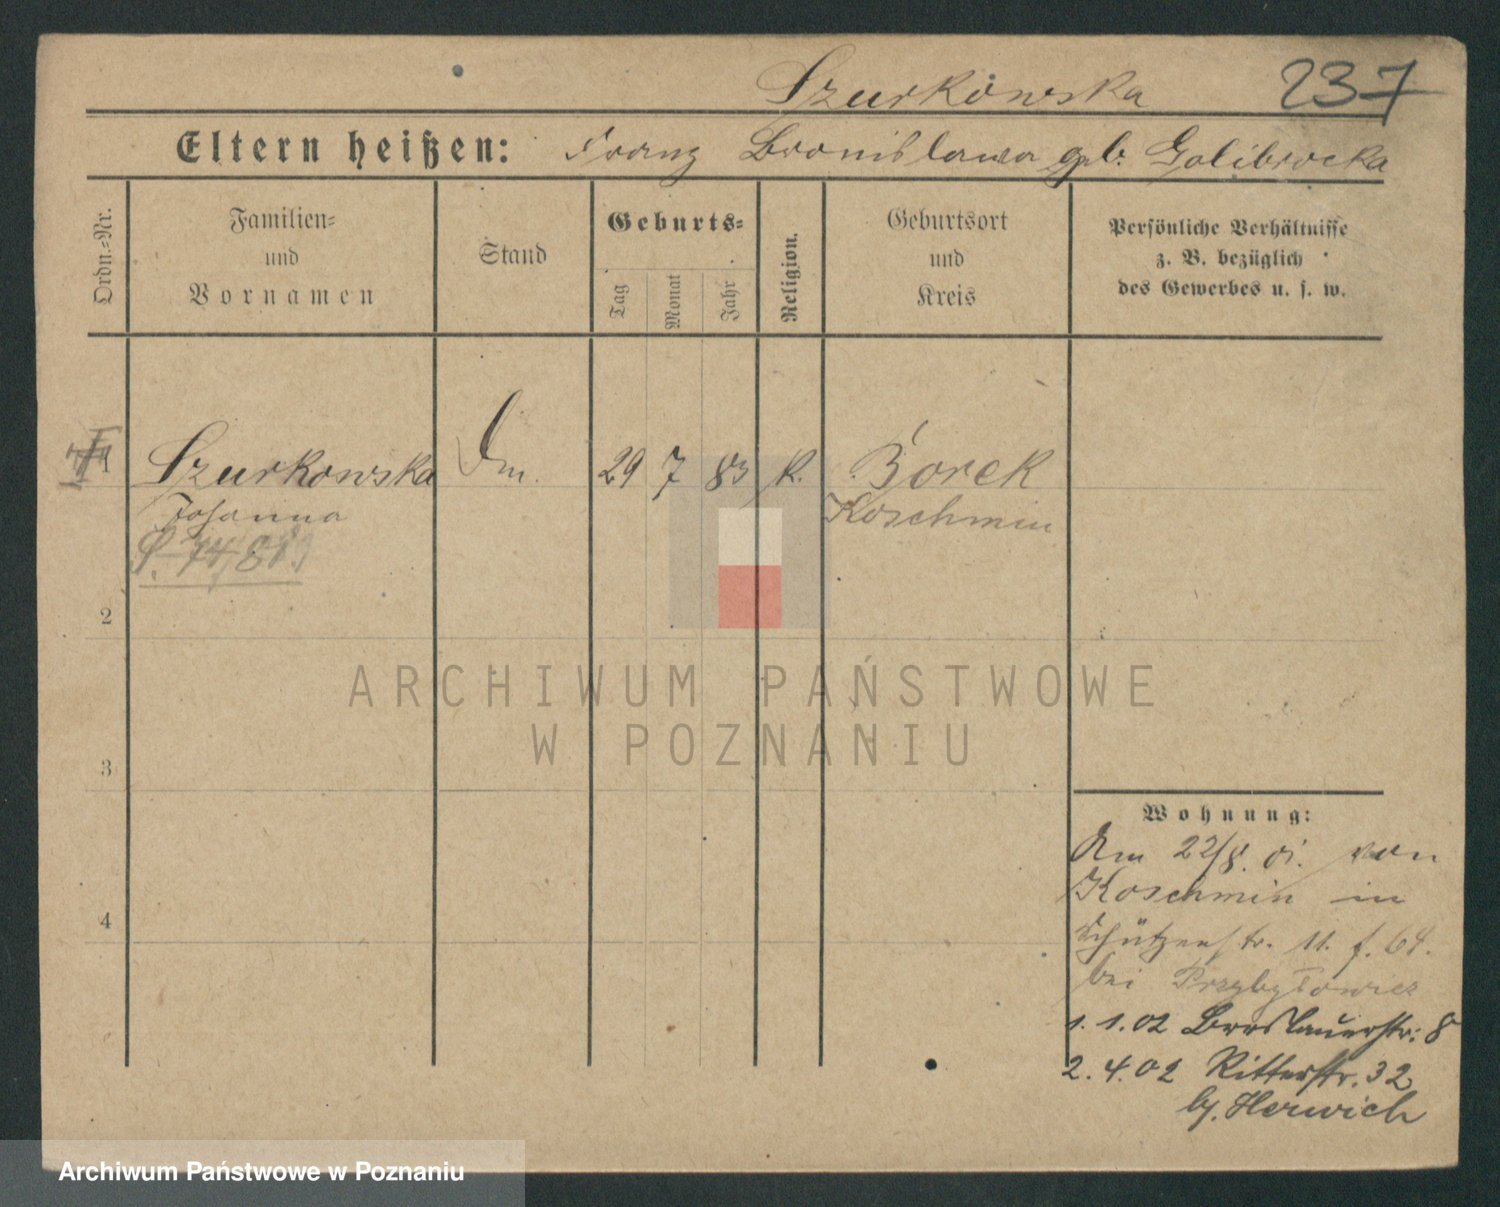 Szurkowska 237
Eltern heißen: Franz Bronislawa geb. Golibrocka
Ordn.-Nr.
Familien-
und
Vornamen
Stand
Geburts-
Tag
Monat
Jahr
Religion.
Geburtsort
und
Kreis
Persönliche Verhältnisse
z. B. bezüglich
des Gewerbes u. s. w.
1 Szurkowska 29 7 83 K. Borek
Johanna Koschmin
2
3
4
ARCHIWUM PAŃSTWOWE
W POZNANIU
Wohnung:
Am 22/8. 01. von
Koschmin in
Schützenstr. 11. f. 64.
bei Przybyłowicz
1. 1. 02 Breslauerstr. 8
2. 4. 02 Ritterstr. 32
by. Herwich
Archiwum Państwowe w Poznaniu